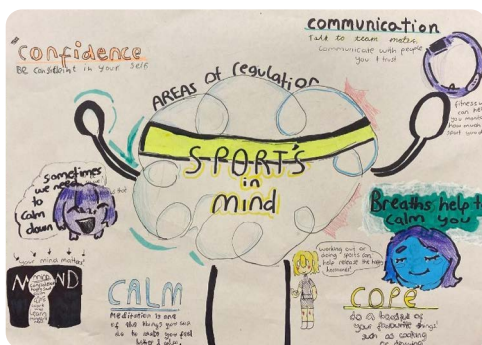 Confidence
Be confident in your self
communication
Talk to team mates,
communicate with people
you trust
AREAS of regulation
fitness
can hel
you monito
how much
sport you d
SPORT'S
in
mind
sometimes
we need
to
calm
down
Breaths help to
calm you
your mind matters
MIND
working out or
doing sports can
help release the happy
hormones!
CALM
Meditation is one
of the things you can
do to make you feel
better & calm.
COPE
do a handful of
your favourite things
such as cooking
or drawing